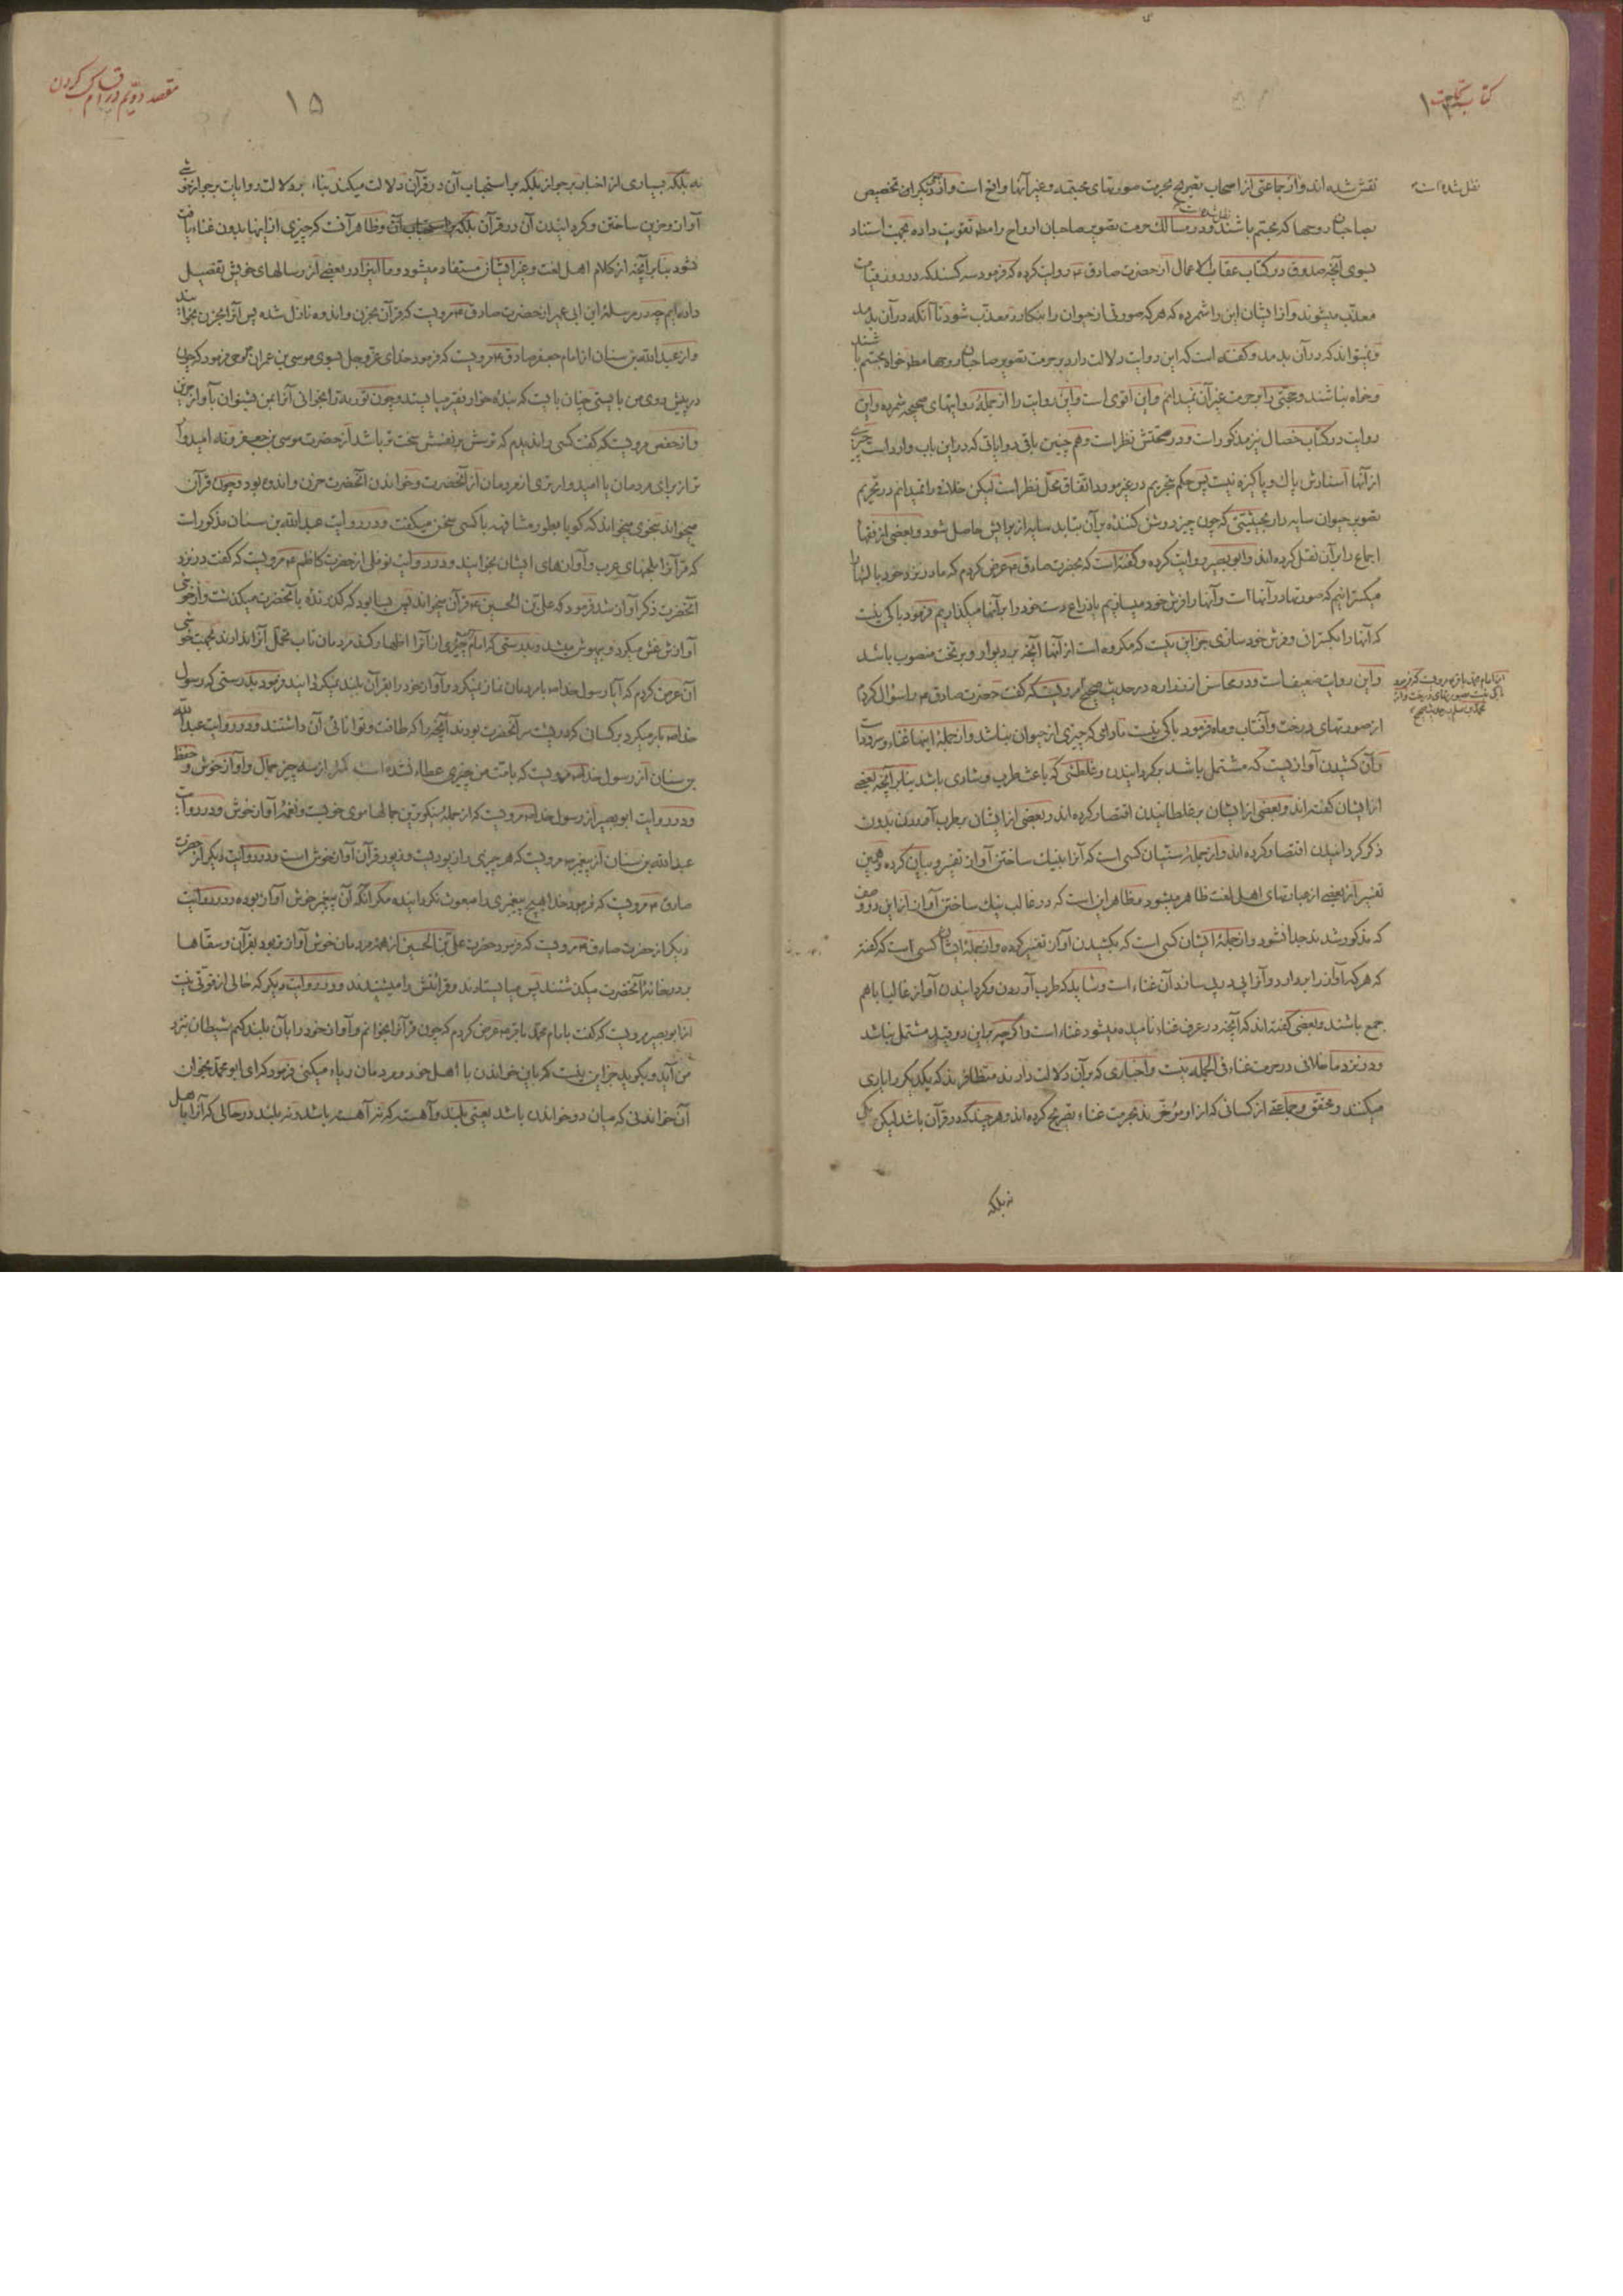 کتاب تجارت
نقش شده اند و از جماعتی از اصحاب تصریح بحرمت صورتهای مجسمه و غیر آنها واقع است و از دیگران تخصیص
نقل شده است
بصاحبان روحها که مجسم باشند و در مسالك حرمت تصویر صاحبان ارواح را مط تقویت داده بجهت استناد
بسوی آنچه صدوق در کتاب عقاب الاعمال از حضرت صادق ع روایت کرده که فرمود سه کسند که در روز قیامت
معذب میشوند و از ایشان این را شمرده که هر که صورتی از حیوان را بنگارد معذب شود تا آنکه در آن بدمد
و نمیتواند که در آن بدمد و گفته است که این روایت دلالت دارد بر حرمت تصویر صاحبان روحها مط خواه مجسم باشند
و خواه نباشند و حجتی را بر حرمت غیر آن نمیدانم و این اقوی است و این روایت را از جمله روایتهای صحیحه شمرده و این
روایت در کتاب خصال نیز مذکور است و در صحتش نظر است و هم چنین باقی روایاتی که در این باب وارد است چیزی
از آنها اسنادش پاك و پاکیزه نیست پس حکم بتحریم در غیر مورد اتفاق محل نظر است لیکن خلافی را نمیدانم در تحریم
تصویر حیوان سایه دار بحیثیتی که چون چیز روشن کننده بر آن بتابد سایه از برایش حاصل شود و بعضی از فقها
اجماع را بر آن نقل کرده اند و ابو بصیر روایت کرده و گفته است که بحضرت صادق ع عرض کردم که ما در نزد خود بالشها
میگسترانیم که صورتها در آنها است و آنها را فرش خود میسازیم فرمود باکی نیست
که آنها را بگسترانی و فرش خود سازی جز این نیست که مکروه است از آنها آنچه بر دیوار و بر تخت منصوب باشد
و این روایت ضعیف است و در محاسن از زراره در حدیث صحیح مرویست که گفت حضرت صادق ع را سؤال کردم
از صورتهای درخت و آفتاب و ماه فرمود باکی نیست مادامی که چیزی از حیوان نباشد و از جمله اینها غناء و سرود است
و آن کشیدن آوازیست که مشتمل باشد بر گردانیدن و غلطشی که باعث طرب و شادی باشد بنا بر آنچه بعضی
از ایشان گفته اند و بعضی از ایشان بر غلطانیدن اقتصار کرده اند و بعضی از ایشان بطرب آوردن بدون
ذکر گردانیدن اقتصار کرده اند و از جمله سنیان کسی است که آنرا به نیك ساختن آواز تفسیر و بیان کرده و همین
تفسیر از بعضی از عبارتهای اهل لغت ظاهر میشود و ظاهر این است که در غالب نیك ساختن آواز از این دو وصف
که مذکور شد جدا نشود و از جمله ایشان کسی است که بکشیدن آواز تفسیر کرده و از جمله ایشان کسی است که گفته
که هر که آواز را بردارد و آنرا پی در پی سازد آن غناء است و شاید که طرب آوردن و گردانیدن آواز غالبا با هم
جمع باشند و بعضی گفته اند که آنچه در عرف غناء نامیده میشود غناء است و اگر چه بر این دو قید مشتمل نباشد
و در نزد ما خلافی در حرمت غناء فی الجمله نیست و اخباری که بر آن دلالت دارند متظافرند که یکدیگر را یاری
میکنند و محقق و جماعتی از کسانی که از او مؤخرند بحرمت غناء تصریح کرده اند و هر چند که در قرآن باشد لیکن
نه بلکه
مقصد دویم در اقسام کسب کردن
۱۵
نه بلکه بسیاری از اخبار بر جواز بلکه بر استحباب آن در قرآن دلالت میکند بناء بر دلالت روایات بر جواز خوشی
آواز و حزین ساختن و گردانیدن آن در قرآن بلکه و ظاهر آنست که چیزی از اینها بدون غناء یافت
نشود بنا بر آنچه از کلام اهل لغت و غیر ایشان مستفاد میشود و ما اینرا در بعضی از رسالهای خویش تفصیل
داده ایم چه در مرسله ابن ابی عمیر از حضرت صادق ع مرویست که قرآن بحزن و اندوه نازل شده پس آنرا بحزن بخوانید
و از عبدالله بن سنان از امام جعفر صادق ع مرویست که فرمود خدای عز و جل بسوی موسی بن عمران وحی فرمود که چون
در پیش روی من بایستی چنان بایست که بنده خوار و فقیر میایستد و چون توریة را بخوانی آنرا بمن بشنوان بآواز حزین
و از حفص مرویست که گفت کسی را ندیدم که ترسش بر نفسش سخت تر باشد از حضرت موسی بن جعفر ع و نه امیدوار
تر از برای مردمان از آنحضرت و خواندن آنحضرت حزن و اندوه بود و چون قرآن
میخواند بنحوی میخواند که گویا بطور مشافهه با کسی سخن میگفت و در روایت عبدالله بن سنان مذکور است
که قرآنرا بلحنهای عرب و آوازهای ایشان بخوانید و در روایت نوفلی از حضرت کاظم ع مرویست که گفت در نزد
آنحضرت ذکر آواز شد فرمود که علی بن الحسین ع قرآن میخواند پس بسا بود که گذرنده بآنحضرت میگذشت و از خوشی
آوازش غش میکرد و بیهوش میشد و بدرستی که امام چیزی از آنرا اظهار کند مردمان تاب تحمل آنرا ندارند بجهت خوشی
آن عرض کردم که آیا رسول خدا ص با مردمان نماز نمیکرد و آواز خود را بقرآن بلند نمیگردانید فرمود بدرستی که رسول
خدا ص بار میکرد بر کسانی که در پشت سر آنحضرت بودند آنچه را که طاقت و توانائی آن داشتند و در روایت عبدالله
بن سنان از رسول خدا ص مرویست که بامت من چیزی عطاء نشده است کمتر از سه چیز جمال و آواز خوش و حفظ
و در روایت ابو بصیر از رسول خدا ص مرویست که از جمله نیکوترین جمالها موی خوبست و نغمه آواز خوش و در روایت
عبدالله بن سنان از پیغمبر ص مرویست که هر چیزی را زیوریست و زیور قرآن آواز خوش است و در روایت دیگر از حضرت
صادق ع مرویست که فرمود خدا هیچ پیغمبری را مبعوث نگردانیده مگر آنکه آن پیغمبر خوش آواز بوده و در روایت
دیگر از حضرت صادق ع مرویست که فرمود حضرت علی بن الحسین از همه مردمان خوش آواز تر بود بقرآن و سقاها
بر در خانه آنحضرت میگذشتند پس میایستادند و قرائتش را میشنیدند و در روایت دیگر که خالی از قوتی نیست
از ابو بصیر مرویست که گفت بامام محمد باقر ع عرض کردم که چون قرآنرا بخوانم و آواز خود را بآن بلند کنم شیطان نزد
من آید و بگوید جز این نیست که باین خواندن با اهل خود و مردمان ریاء میکنی فرمود که ای ابو محمد بخوان
آن خواندنی که میان دو خواندن باشد یعنی بلند و آهسته که نه آهسته باشد و نه بلند در حالی که آنرا باهل